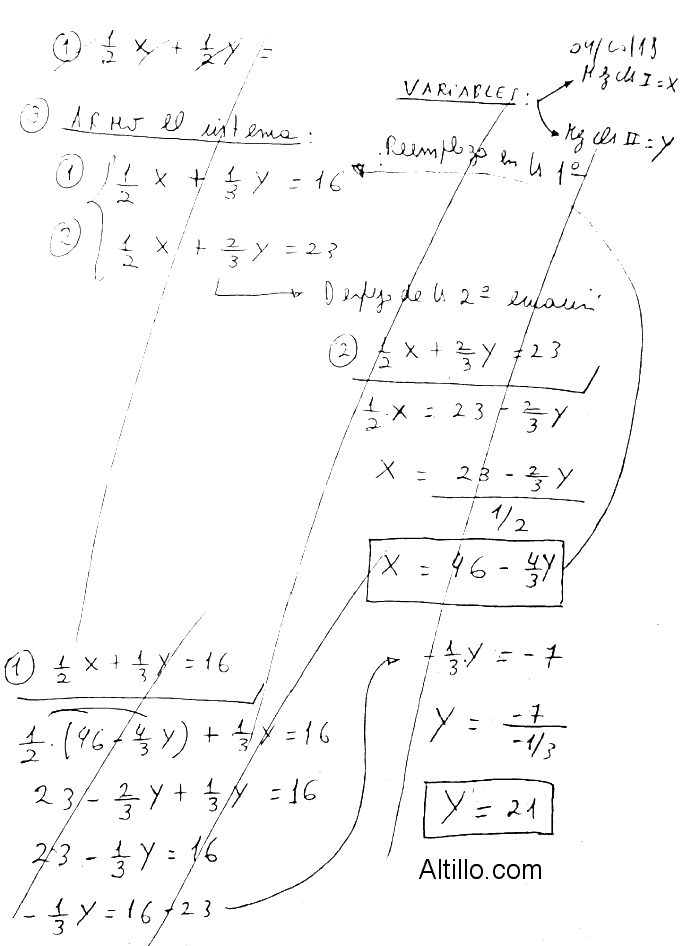 ① 1/2 X + 1/2 Y =
04/ /13
VARIABLES:
I = X
II = Y
③ ARMO el sistema:
① 1/2 X + 1/3 Y = 16
② 1/2 X + 2/3 Y = 23
Reemplazo en la 1º
Despejo de la 2º ecuación
② 1/2 X + 2/3 Y = 23
1/2 X = 23 - 2/3 Y
X = 23 - 2/3 Y
1/2
X = 46 - 4/3 Y
① 1/2 X + 1/3 Y = 16
1/2 . (46 - 4/3 Y) + 1/3 Y = 16
23 - 2/3 Y + 1/3 Y = 16
23 - 1/3 Y = 16
- 1/3 Y = 16 - 23
- 1/3 Y = - 7
Y = -7
-1/3
Y = 21
Altillo.com